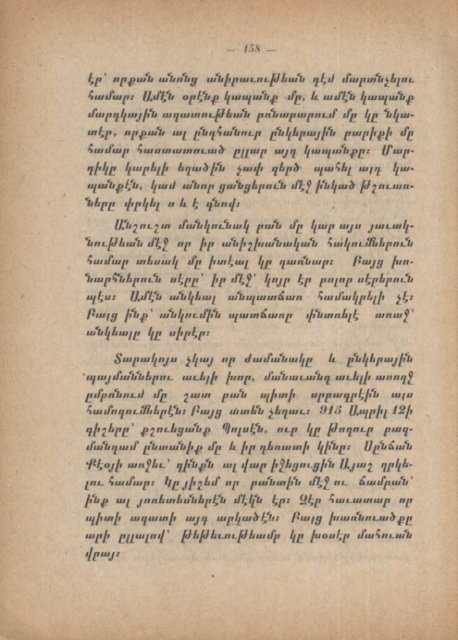 — 158 —
էր՝ որքան անոնց անիրաւութեան դէմ մարտնչելու
համար։ Ամէն օրէնք կապանք մը, և ամէն կապանք
մարդկային ազատութեան բռնաբարում մը կը նկա-
տէր, որքան ալ ընդհանուր ընկերային բարիքի մը
համար հաստատուած ըլլար այդ կապանքը։ Մար-
դիկը կարելի եղածին չափ զերծ պահել այդ կա-
պանքէն, կամ անոր ցանցերուն մէջ ինկած թշուառ-
ները փրկել ո և է գնով։
Անշուշտ մանկունակ բան մը կար այս յաւակ-
նութեան մէջ որ իր անիշխանական հակումներուն
համար տեսակ մը իտէալ կը դառնար։ Բայց խո-
նարհներուն սէրը՝ իր մէջ՝ կոյր էր բոլոր սէրերուն
պէս։ Ամէն անկեալ անպատճառ համակրելի չէ։
Բայց ինք՝ անկումին պատճառը փնտռելէ առաջ՝
անկեալը կը սիրէր։
Տարակոյս չկայ որ ժամանակը և ընկերային
պայմաններու աւելի խոր, մանաւանդ աւելի առողջ
ըմբռնում մը շատ բան պիտի սրբագրէին այս
համոզումներէն։ Բայց ատեն չեղաւ։ 915 Ապրիլ 12ի
գիշերը՝ քշուեցանք Պոլսէն, ուր կը թողուր բազ-
մանդամ ընտանիք մը և իր դեռատի կինը։ Սընճան
Քէօյի առջեւ՝ զինքն ալ վար իջեցուցին Այաշ ղրկե-
լու համար։ Կը յիշեմ որ բանտին մէջ ու ճամբան՝
ինք ալ յոռետեսներէն մէկն էր։ Չէր հաւատար որ
պիտի ազատի այդ արկածէն։ Բայց խառնուածքը
արի ըլլալով՝ թեթեւութեամբ կը խօսէր մահուան
վրայ։